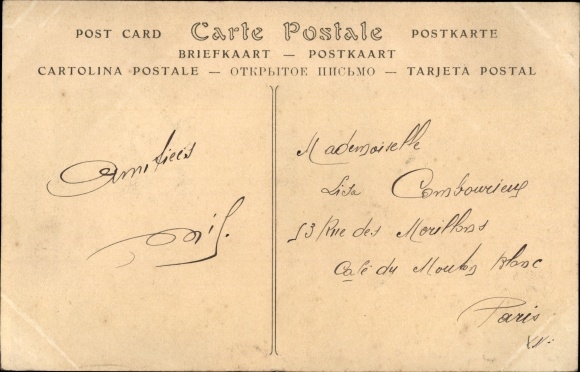 POST CARD Carte Postale POSTKARTE
BRIEFKAART — POSTKAART
CARTOLINA POSTALE — ОТКРЫТОЕ ПИСЬМО — TARJETA POSTAL
Amitiées
Mademoiselle
Lisa Combourieux
53 Rue des Morillons
Café du Mouton blanc
Paris
XV.